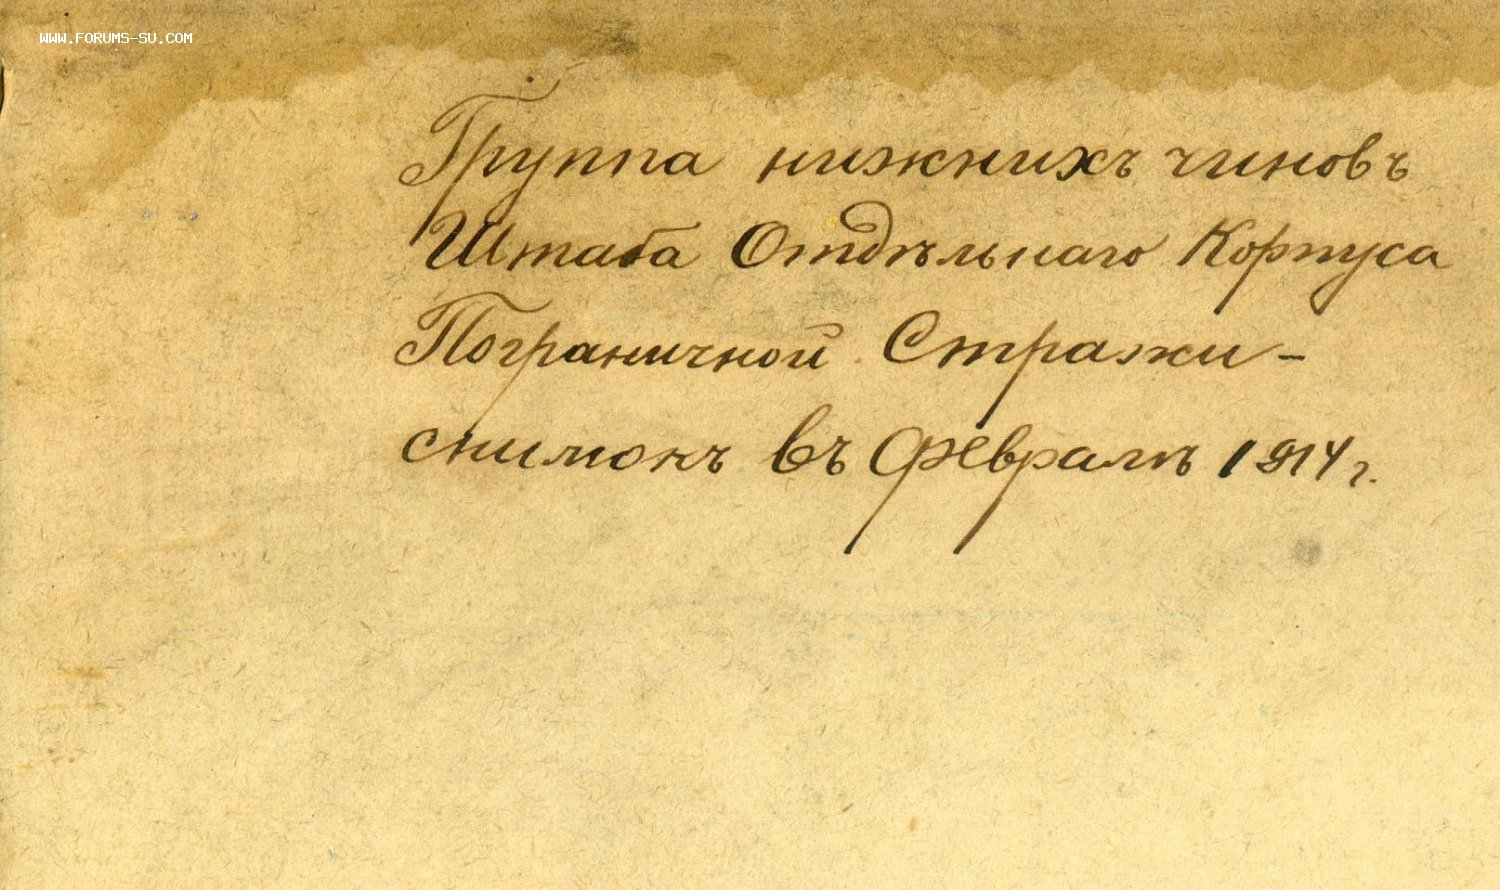 WWW.FORUMS-SU.COM
Группа нижнихъ чиновъ
Штаба Отдѣльнаго Корпуса
Пограничной Стражи –
снимокъ въ Февралѣ 1914 г.